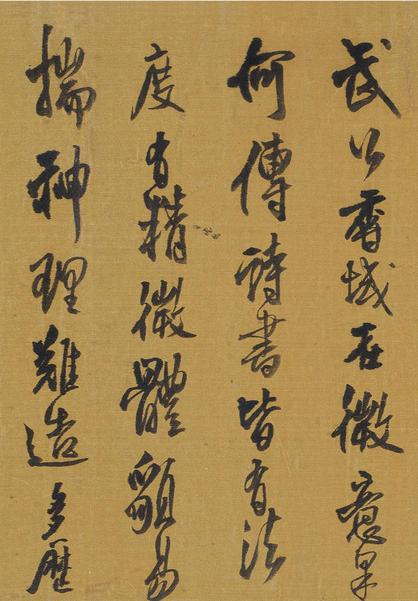 武公域在微意果
何傳詩書皆有法
度有精微體貌易
揣神理難造多歷